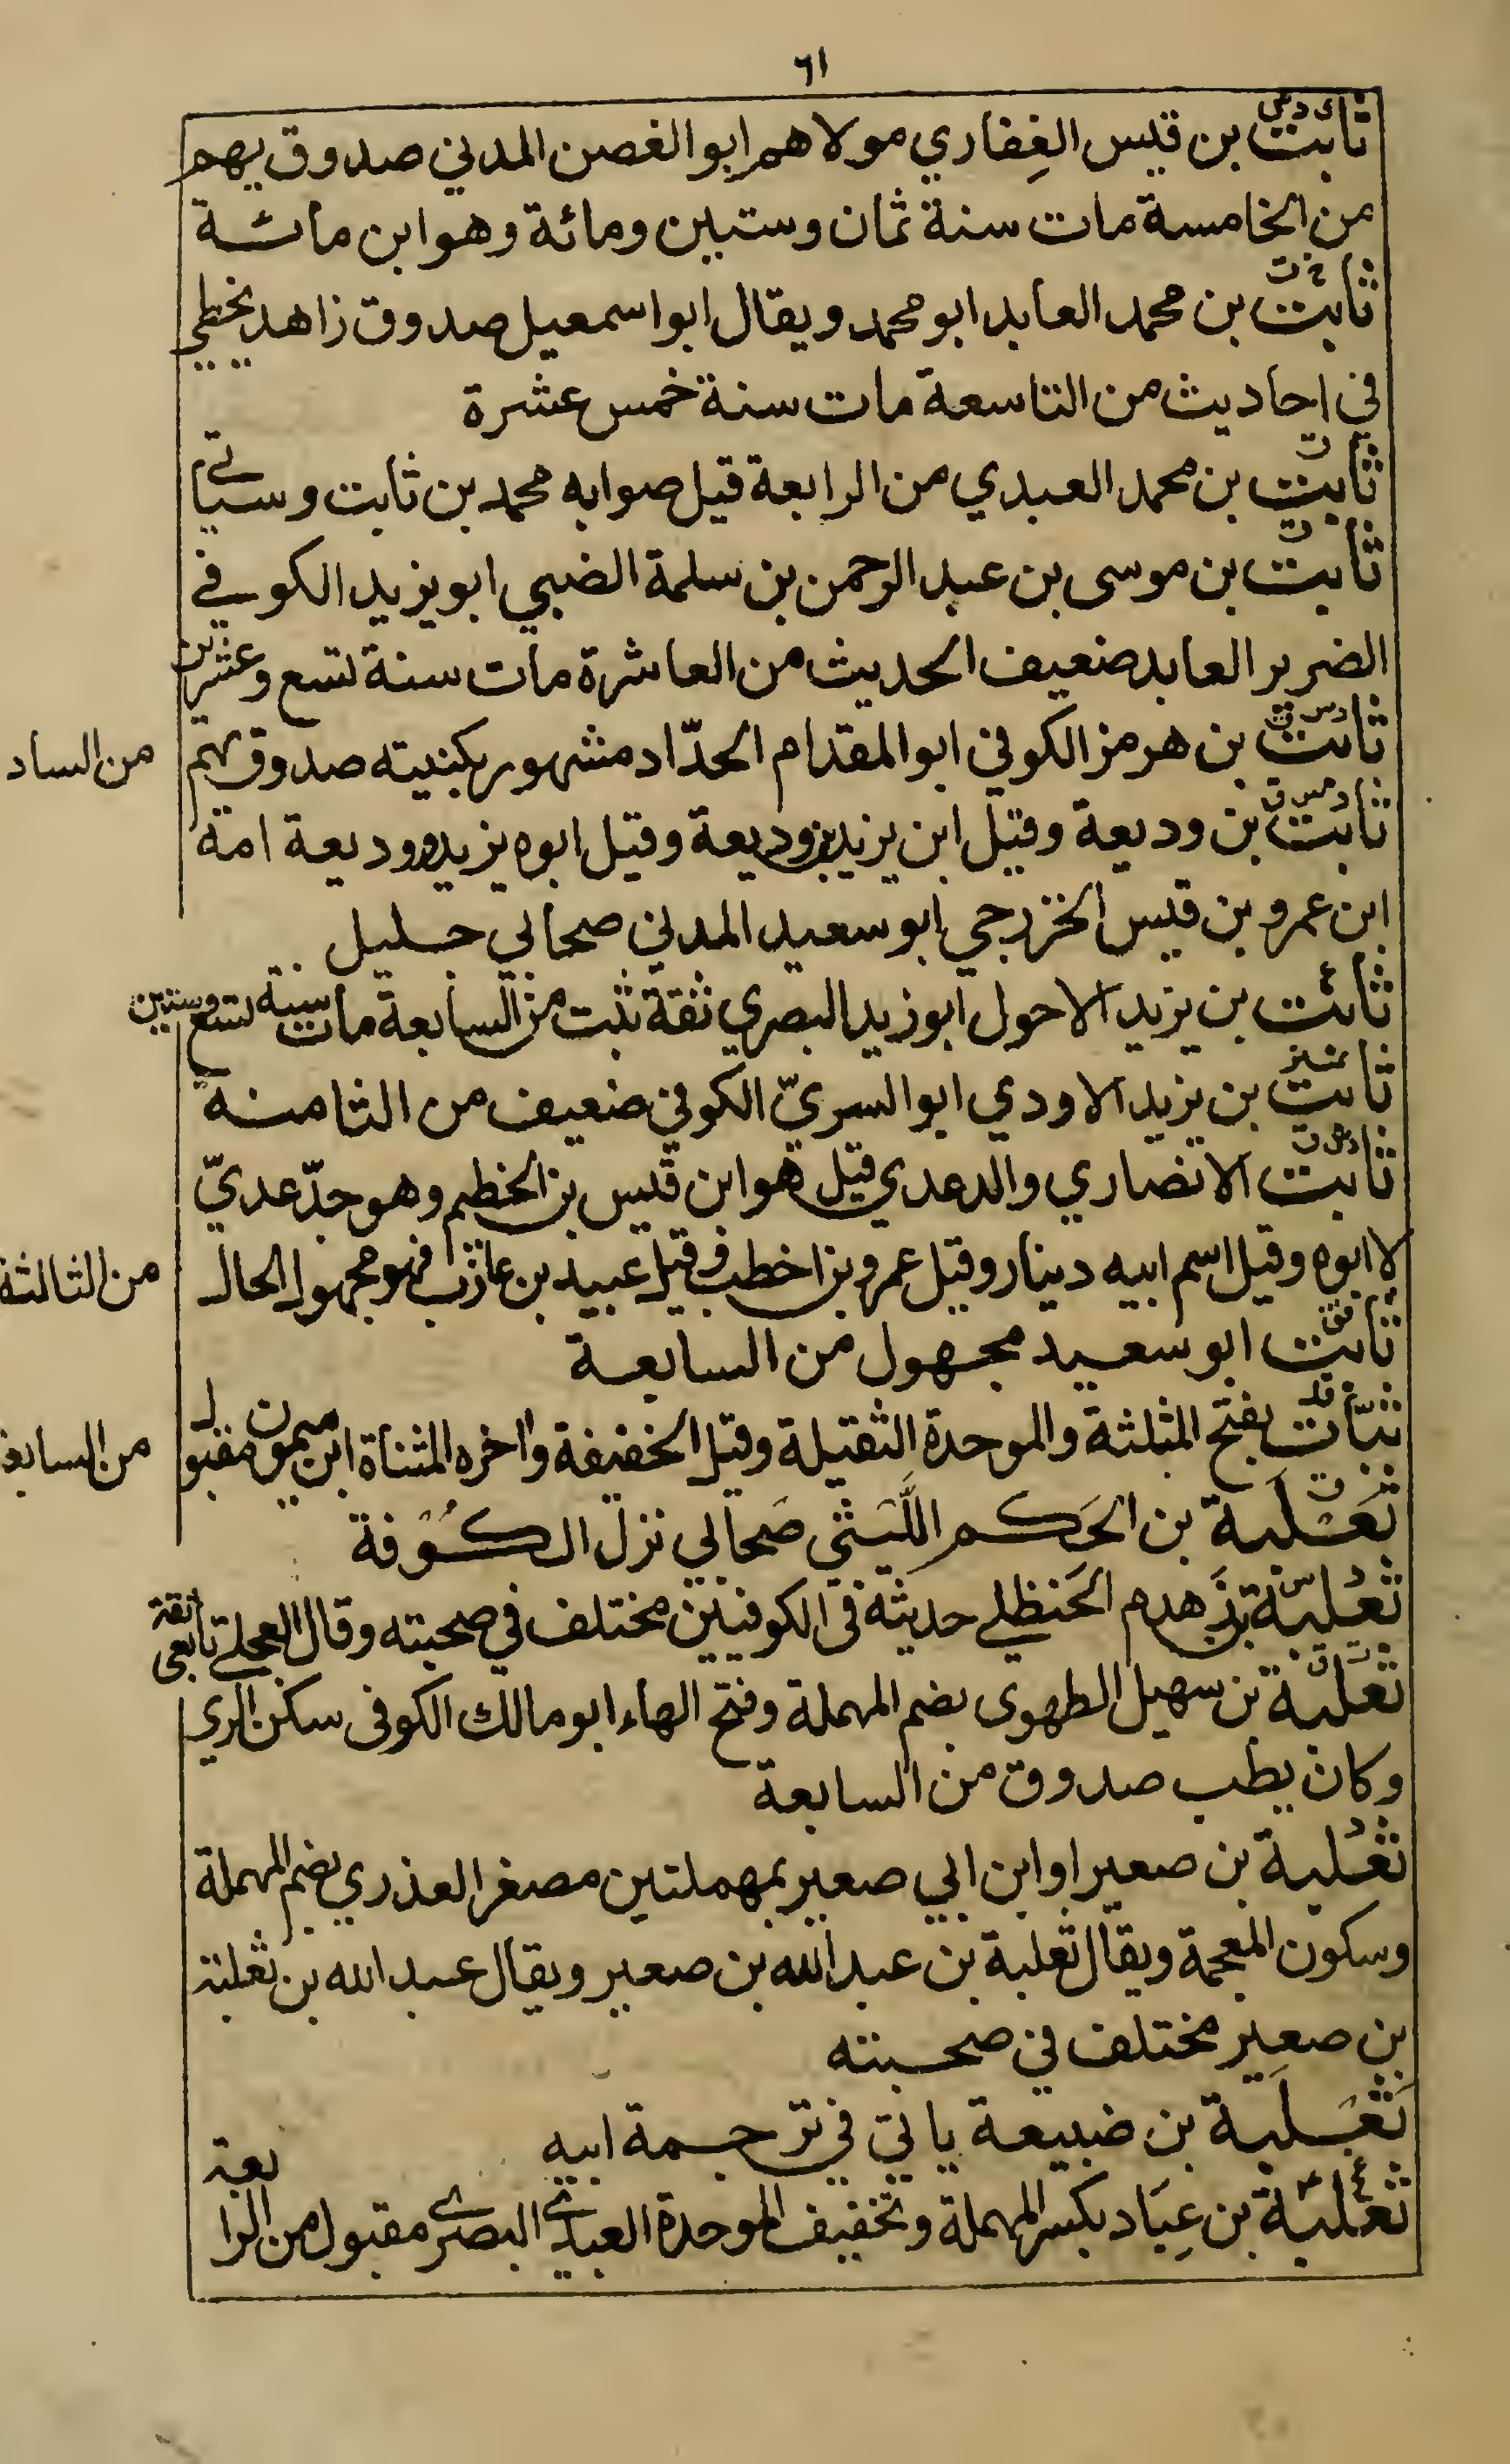 ٦١
ثابت بن قيس الغِفاري مولاهم ابو الغصن المدني صدوق يهم
من الخامسة مات سنة ثمان وستين ومائة وهو ابن مائة
ثابت بن محمد العابد ابو محمد ويقال ابو اسمعيل صدوق زاهد يخطئ
في احاديث من التاسعة مات سنة خمس عشرة
ثابت بن محمد العبدي من الرابعة قيل صوابه محمد بن ثابت وسياتي
ثابت بن موسى بن عبد الرحمن بن سلمة الضبي ابو يزيد الكوفي
الضرير العابد ضعيف الحديث من العاشرة مات سنة تسع وعشرين
ثابت بن هرمز الكوفي ابو المقدام الحدّاد مشهور بكنيته صدوق يهم من الساد
ثابت بن وديعة وقيل ابن يزيد بن وديعة وقيل ابوه يزيد ووديعة امه
ابن عمرو بن قيس الخزرجي ابو سعيد المدني صحابي جليل
ثابت بن يزيد الاحول ابو زيد البصري ثقة ثبت من السابعة مات سنة تسع وستين
ثابت بن يزيد الاودي ابو السريّ الكوفي ضعيف من الثامنة
ثابت الانصاري والد عدي قيل هو ابن قيس بن الخطيم وهو جدّ عديّ
لا ابوه وقيل اسم ابيه دينار وقيل عمرو بن اخطب وقيل عبيد بن عازب فهو مجهول الحال من الثالثة
ثابت ابو سعيد مجهول من السابعة
ثبّات بفتح المثلثة والموحدة الثقيلة وقيل الخفيفة واخره المثناة ابن ميمون مقبول من السابعة
ثَعْلَبة بن الحَكم اللَّيثي صَحابي نزل الكُوفة
ثعلبة بن زَهدم الحَنظلي حديثه في الكوفيين مختلف في صحبته وقال العجلي تابعي ثقة
ثعلبة بن سهيل الطهوي بضم المهملة وفتح الهاء ابو مالك الكوفي سكن الري
وكان يطب صدوق من السابعة
ثعلبة بن صعير او ابن ابي صعير بمهملتين مصغر العذري بضم المهملة
وسكون المعجمة ويقال ثعلبة بن عبد الله بن صعير ويقال عبد الله بن ثعلبة
بن صعير مختلف في صحبته
ثَعْلَبة بن ضبيعة ياتي في ترجمة ابيه
ثعلبة بن عِبَاد بكسر المهملة وتخفيف الموحدة العبدي البصري مقبول من الرابعة